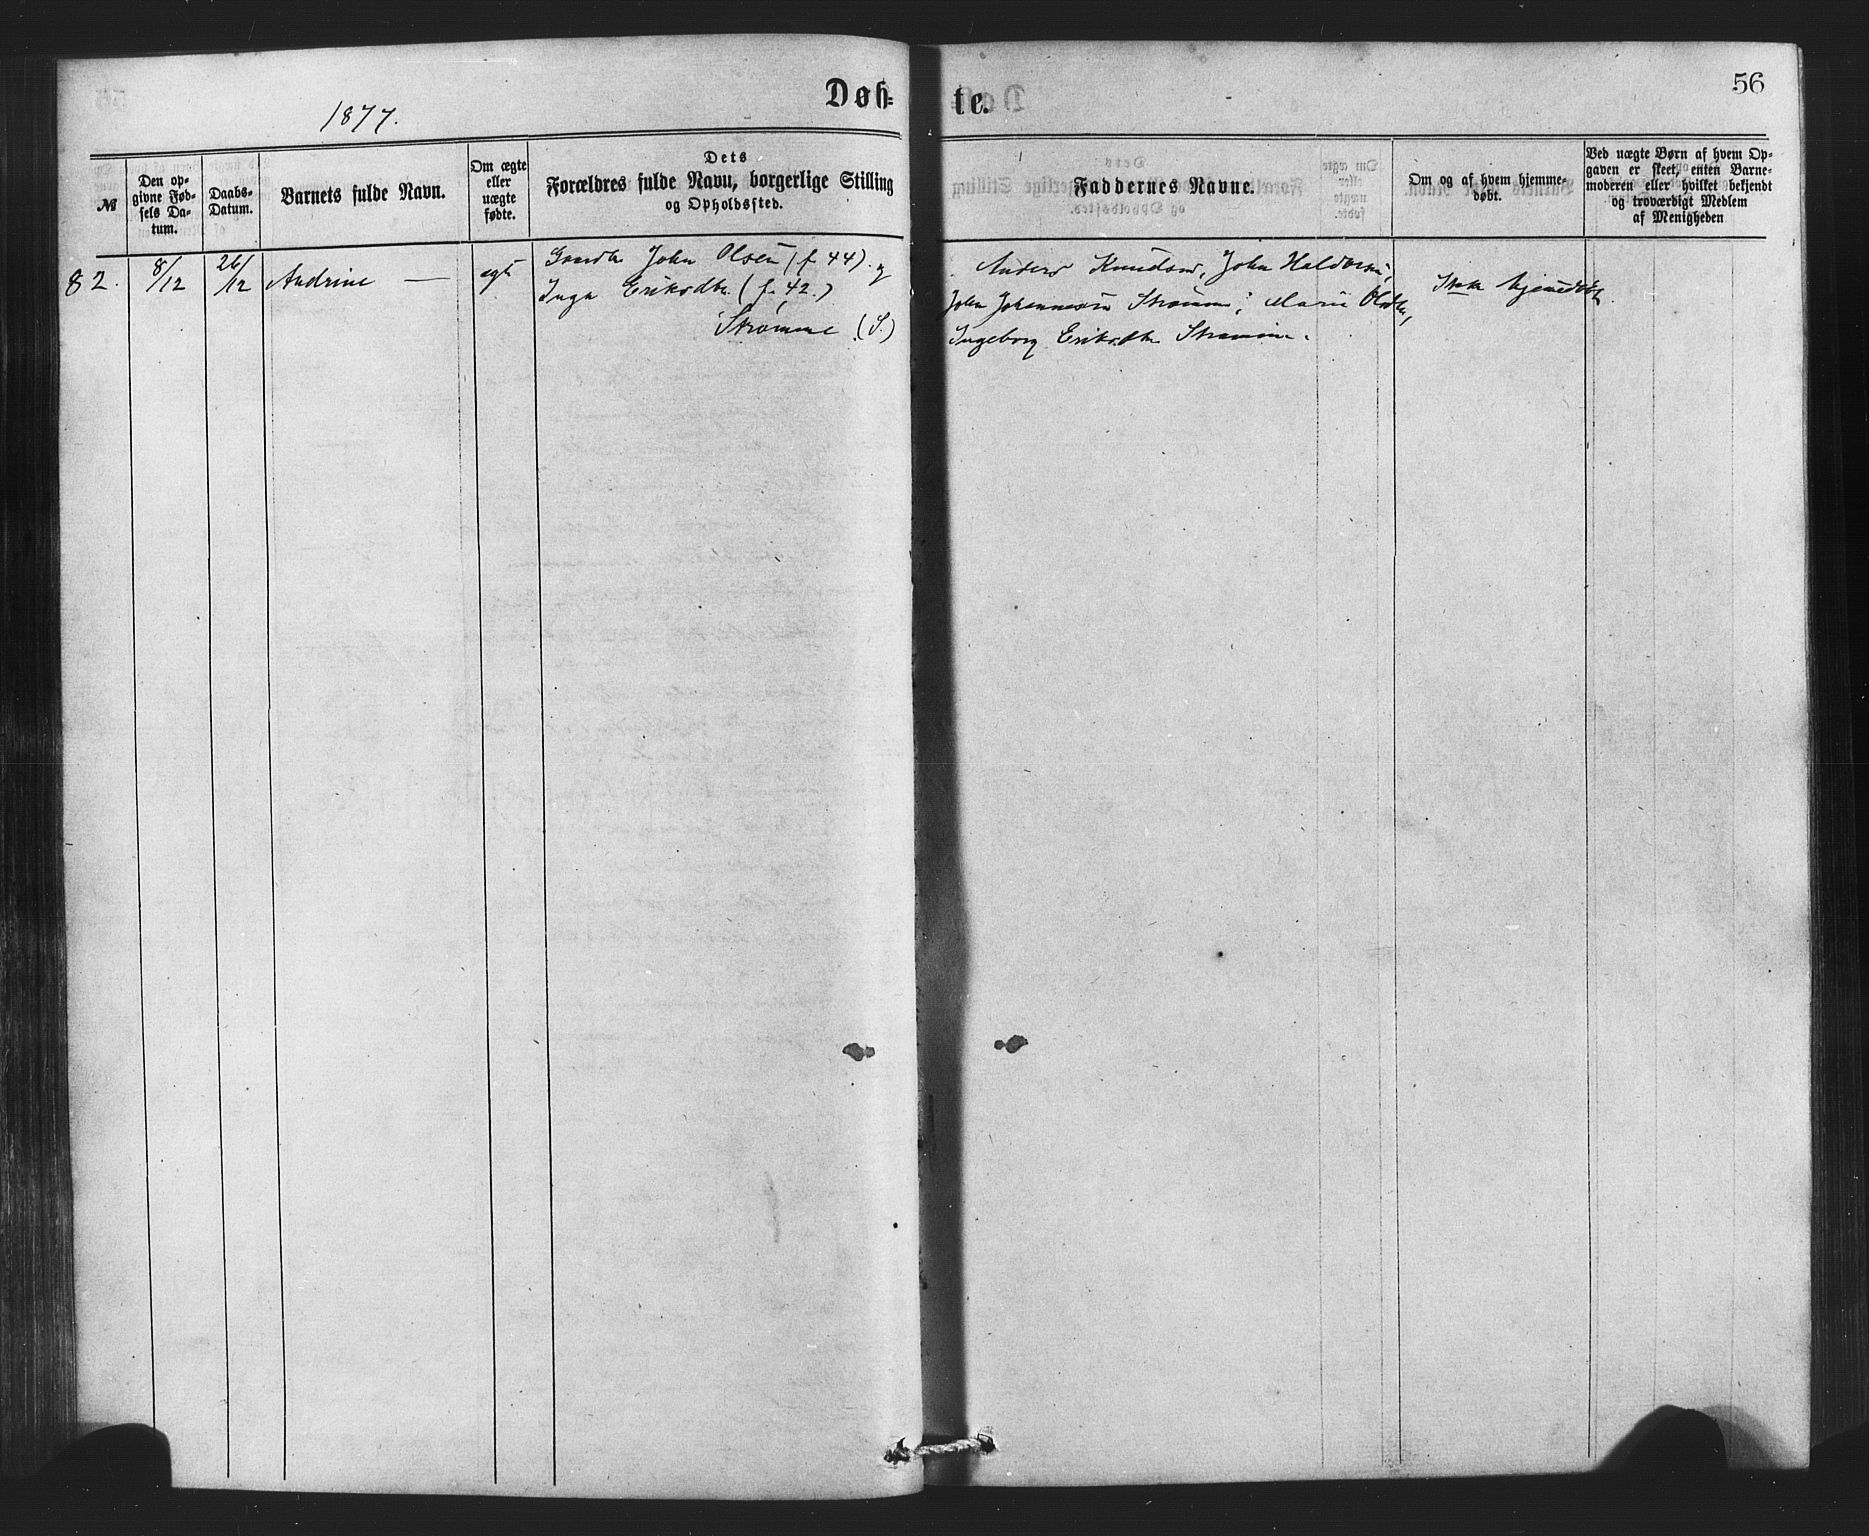 1877.
Døb=
te.
56
№
Den op-
givne Fød-
sels Da-
tum.
Daabs-
Datum.
Barnets fulde Navn.
Om ægte
eller
uægte
fødte.
Dets
Forældres fulde Navn, borgerlige Stilling
og Opholdssted.
Faddernes Navne.
Om og af hvem hjemme-
døbt.
Ved uægte Børn af hvem Op-
gaven er skeet, enten Barne-
moderen eller hvilket bekjendt
og troværdigt Medlem
af Menigheden
82.
8/12
26/12
Andrine —
egte
Gaardbr John Olsen (f. 44). og
Inga Eriksdtr. (f. 42.)
Strømme (S.)
Anders Knudsen, John Haldorsen,
John Johannesen Strømme; Marie Olsdtr,
Ingeborg Eriksdtr Strømme.
Ikke hjemedøbt.